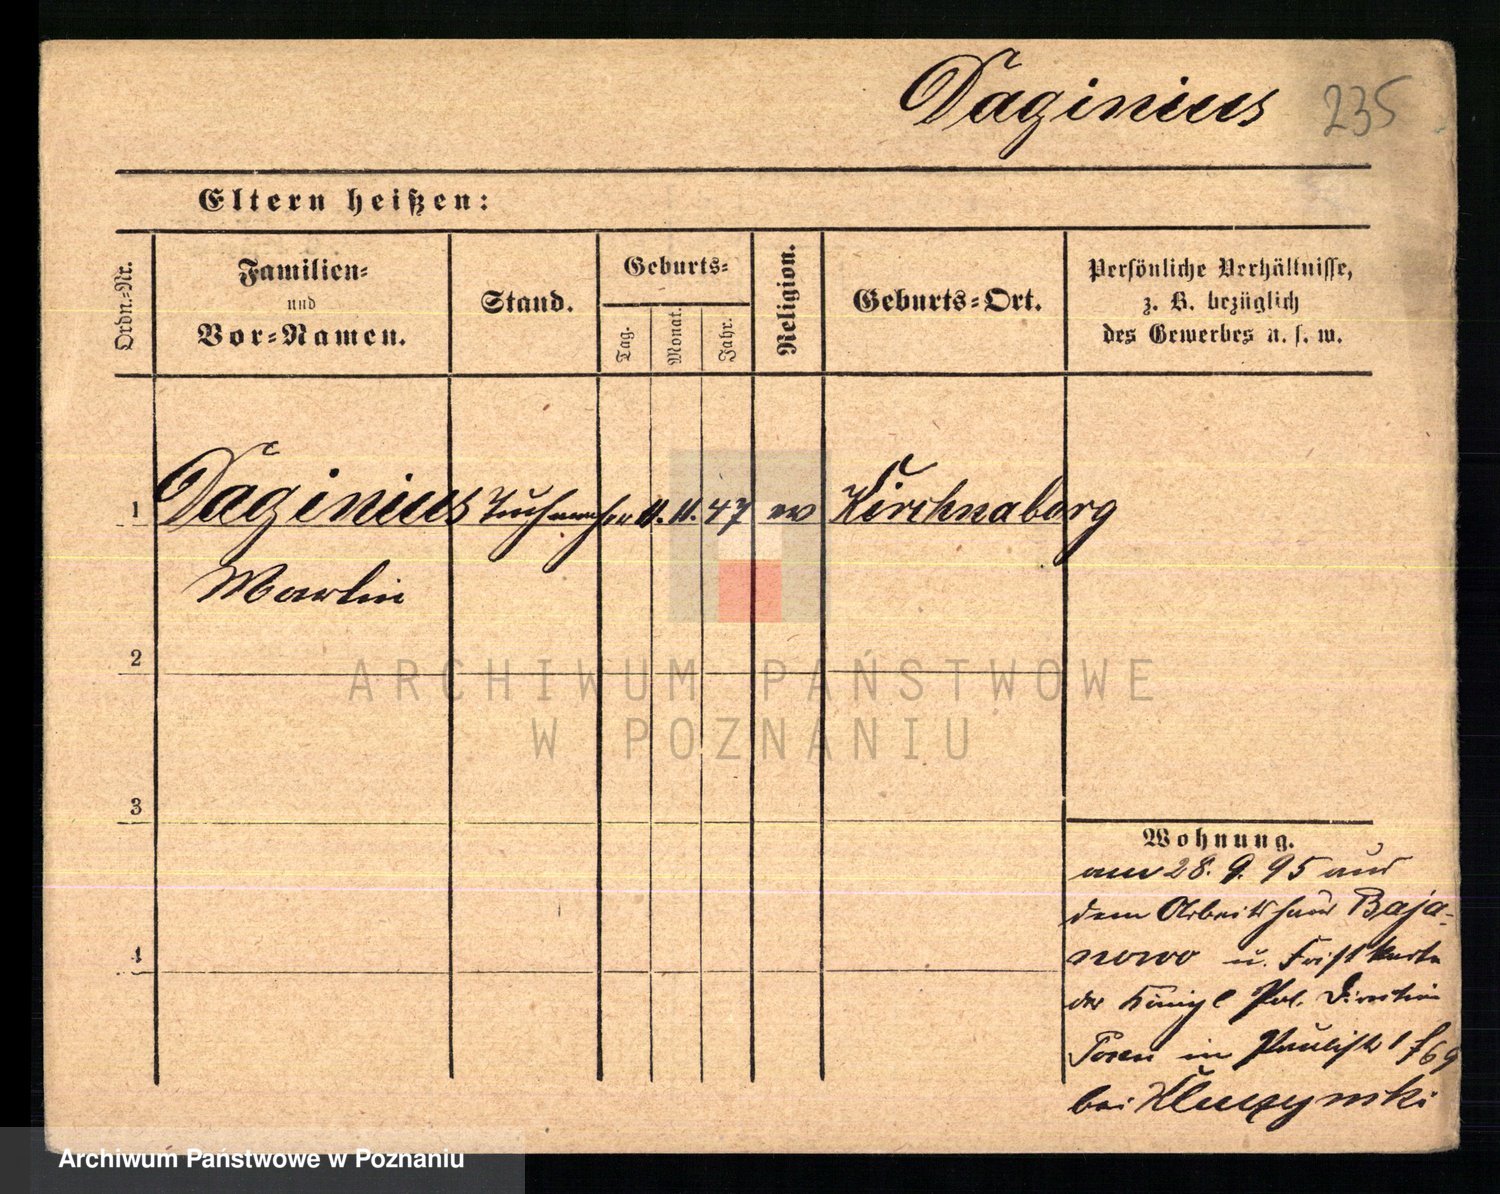 Daginius 235
Eltern heißen:
Ordn.-Nr.
Familien-
und
Vor-Namen.
Stand.
Geburts-
Tag.
Monat.
Jahr.
Religion.
Geburts-Ort.
Persönliche Verhältnisse,
z. B. bezüglich
des Gewerbes u. s. w.
1 Daginius Tuchmacher 11. 11. 47 ev Kirchnaborg
Martin
2
ARCHIWUM PAŃSTWOWE
W POZNANIU
3
Wohnung.
am 28. 9. 95 aus
dem Arbeitshaus Baja-
4
nowo u. Fristkarte
der Königl Pol. Direction
Posen in Paulist 1
bei
Archiwum Państwowe w Poznaniu